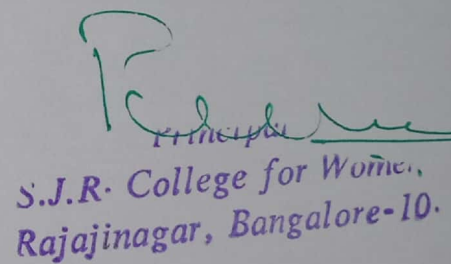 Principal
S.J.R. College for Women,
Rajajinagar, Bangalore-10.